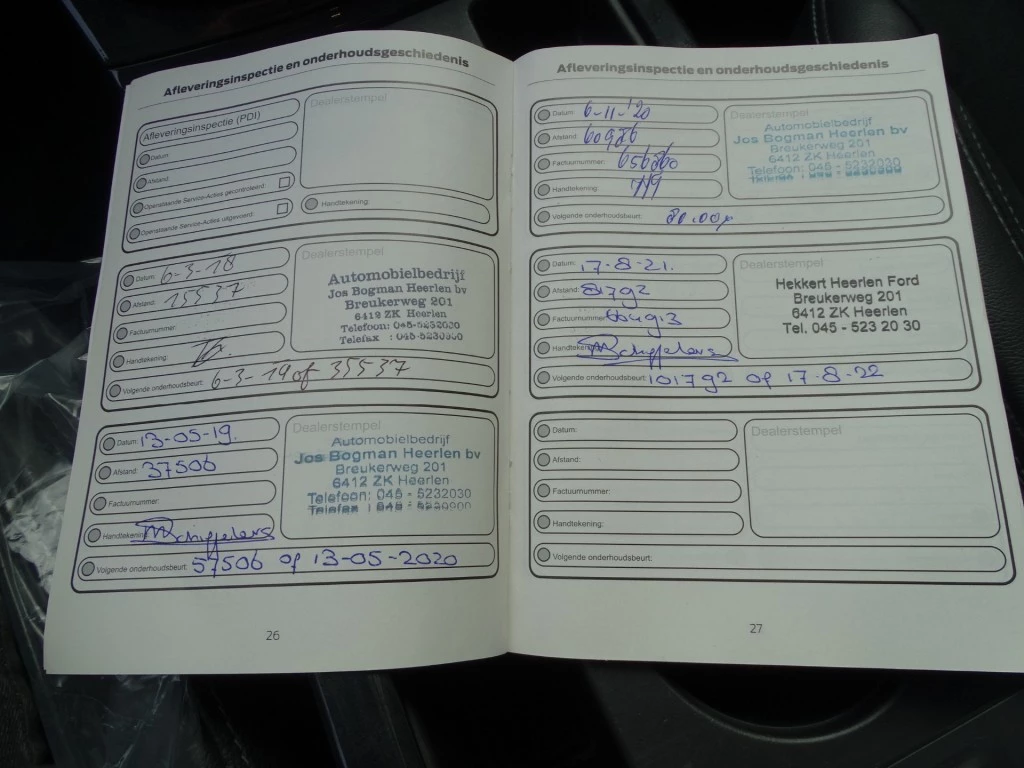 Afleveringsinspectie en onderhoudsgeschiedenis
Afleveringsinspectie (PDI)
Datum:
Afstand:
Openstaande Service-Acties gecontroleerd:
Openstaande Service-Acties uitgevoerd:
Dealerstempel
Handtekening:
Datum: 6-3-18
Afstand: 15537
Factuurnummer:
Handtekening:
Volgende onderhoudsbeurt: 6-3-19 of 35537
Dealerstempel
Automobielbedrijf
Jos Bogman Heerlen bv
Breukerweg 201
6412 ZK Heerlen
Telefoon: 045-5232030
Telefax : 045-5230900
Datum: 13-05-19.
Afstand: 37506
Factuurnummer:
Handtekening:
Volgende onderhoudsbeurt: 57506 of 13-05-2020
Dealerstempel
Automobielbedrijf
Jos Bogman Heerlen bv
Breukerweg 201
6412 ZK Heerlen
Telefoon: 045 - 5232030
Telefax : 045 - 5230900
26
Afleveringsinspectie en onderhoudsgeschiedenis
Datum: 6-11-'20
Afstand: 60986
Factuurnummer: 656860
Handtekening:
Volgende onderhoudsbeurt:
Dealerstempel
Automobielbedrijf
Jos Bogman Heerlen bv
Breukerweg 201
6412 ZK Heerlen
Telefoon: 045 - 5232030
Telefax : 045 - 5230900
Datum: 17-8-21.
Afstand: 81792
Factuurnummer:
Handtekening:
Volgende onderhoudsbeurt: 101792 of 17-8-22
Dealerstempel
Hekkert Heerlen Ford
Breukerweg 201
6412 ZK Heerlen
Tel. 045 - 523 20 30
Datum:
Afstand:
Factuurnummer:
Handtekening:
Volgende onderhoudsbeurt:
Dealerstempel
27